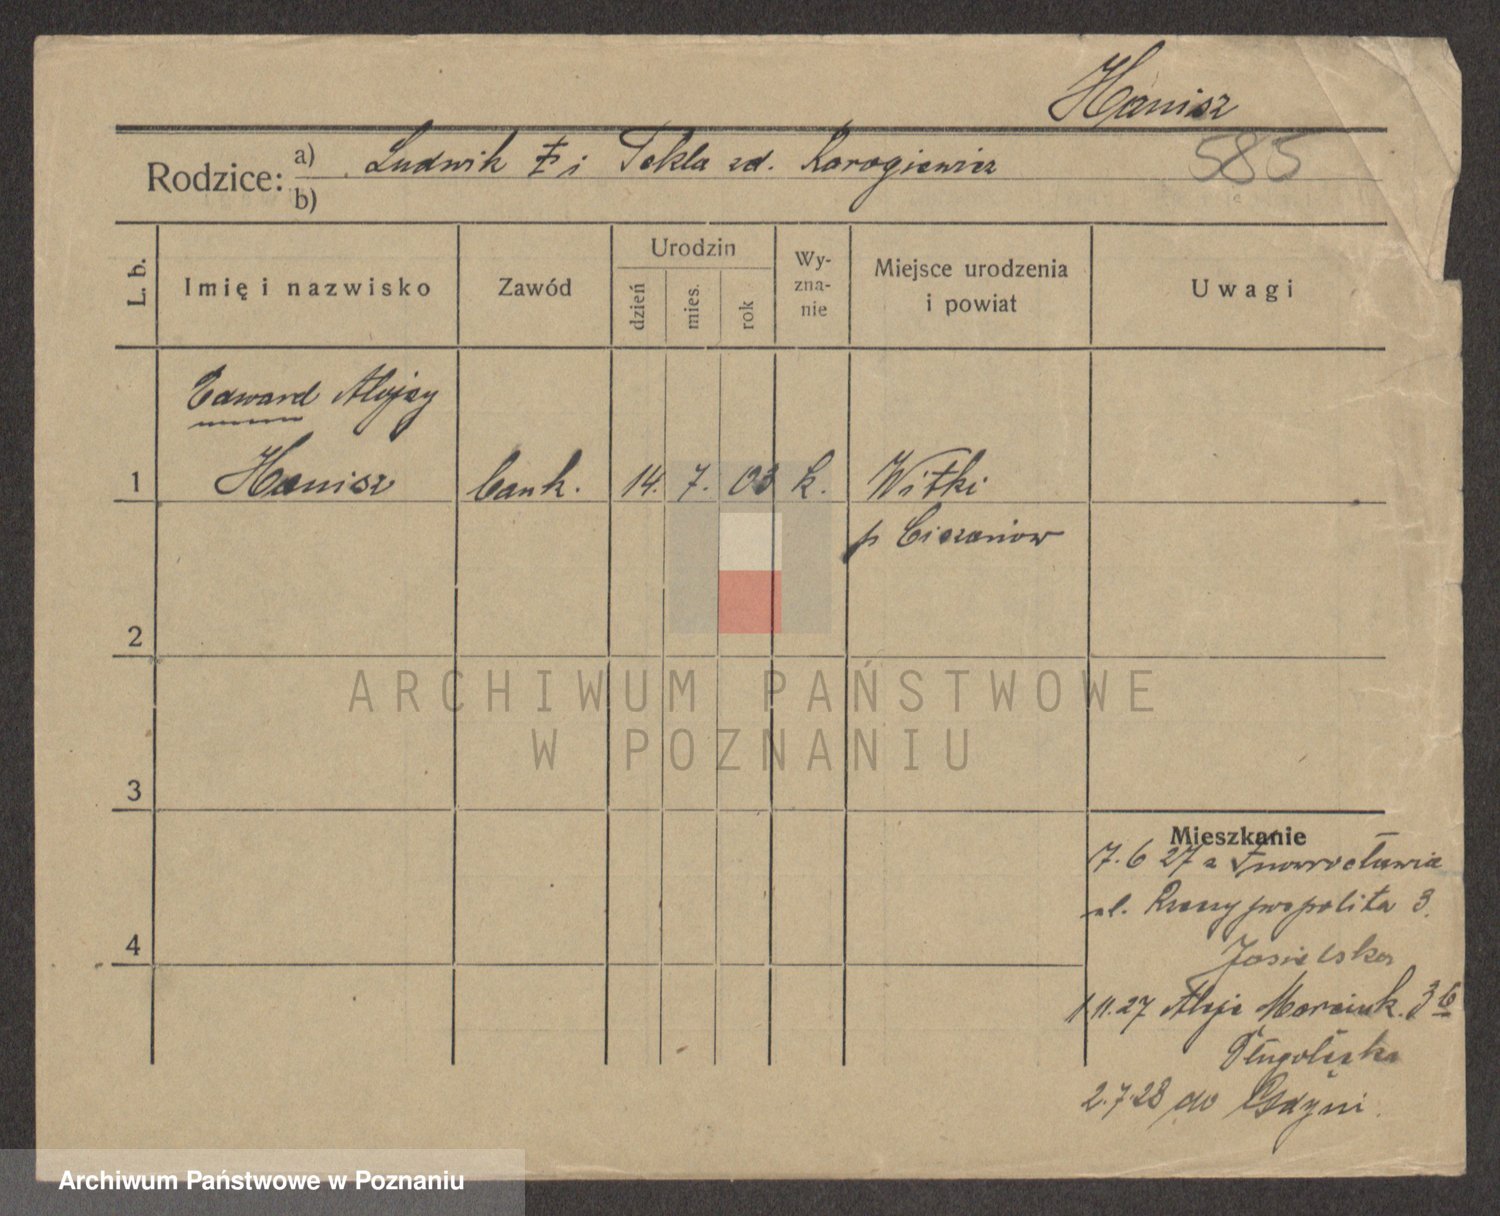 Hanisz
585
Rodzice: a) Ludwik i Tekla zd. Karogiewicz
b)
L. b.
Imię i nazwisko
Zawód
Urodzin
dzień
mies.
rok
Wy-
zna-
nie
Miejsce urodzenia
i powiat
Uwagi
Edward Alojzy
1 Hanisz bank. 14. 7. 03 k. Witki
p Cieszanów
2
ARCHIWUM PAŃSTWOWE
W POZNANIU
3
Mieszkanie
7.6 27 z Inowrocławia
ul. Rzeczypospolita 3.
Jasielska
1 11.27 Aleje Marcink. 36
2.7.28 do Gdyni.
4
Archiwum Państwowe w Poznaniu